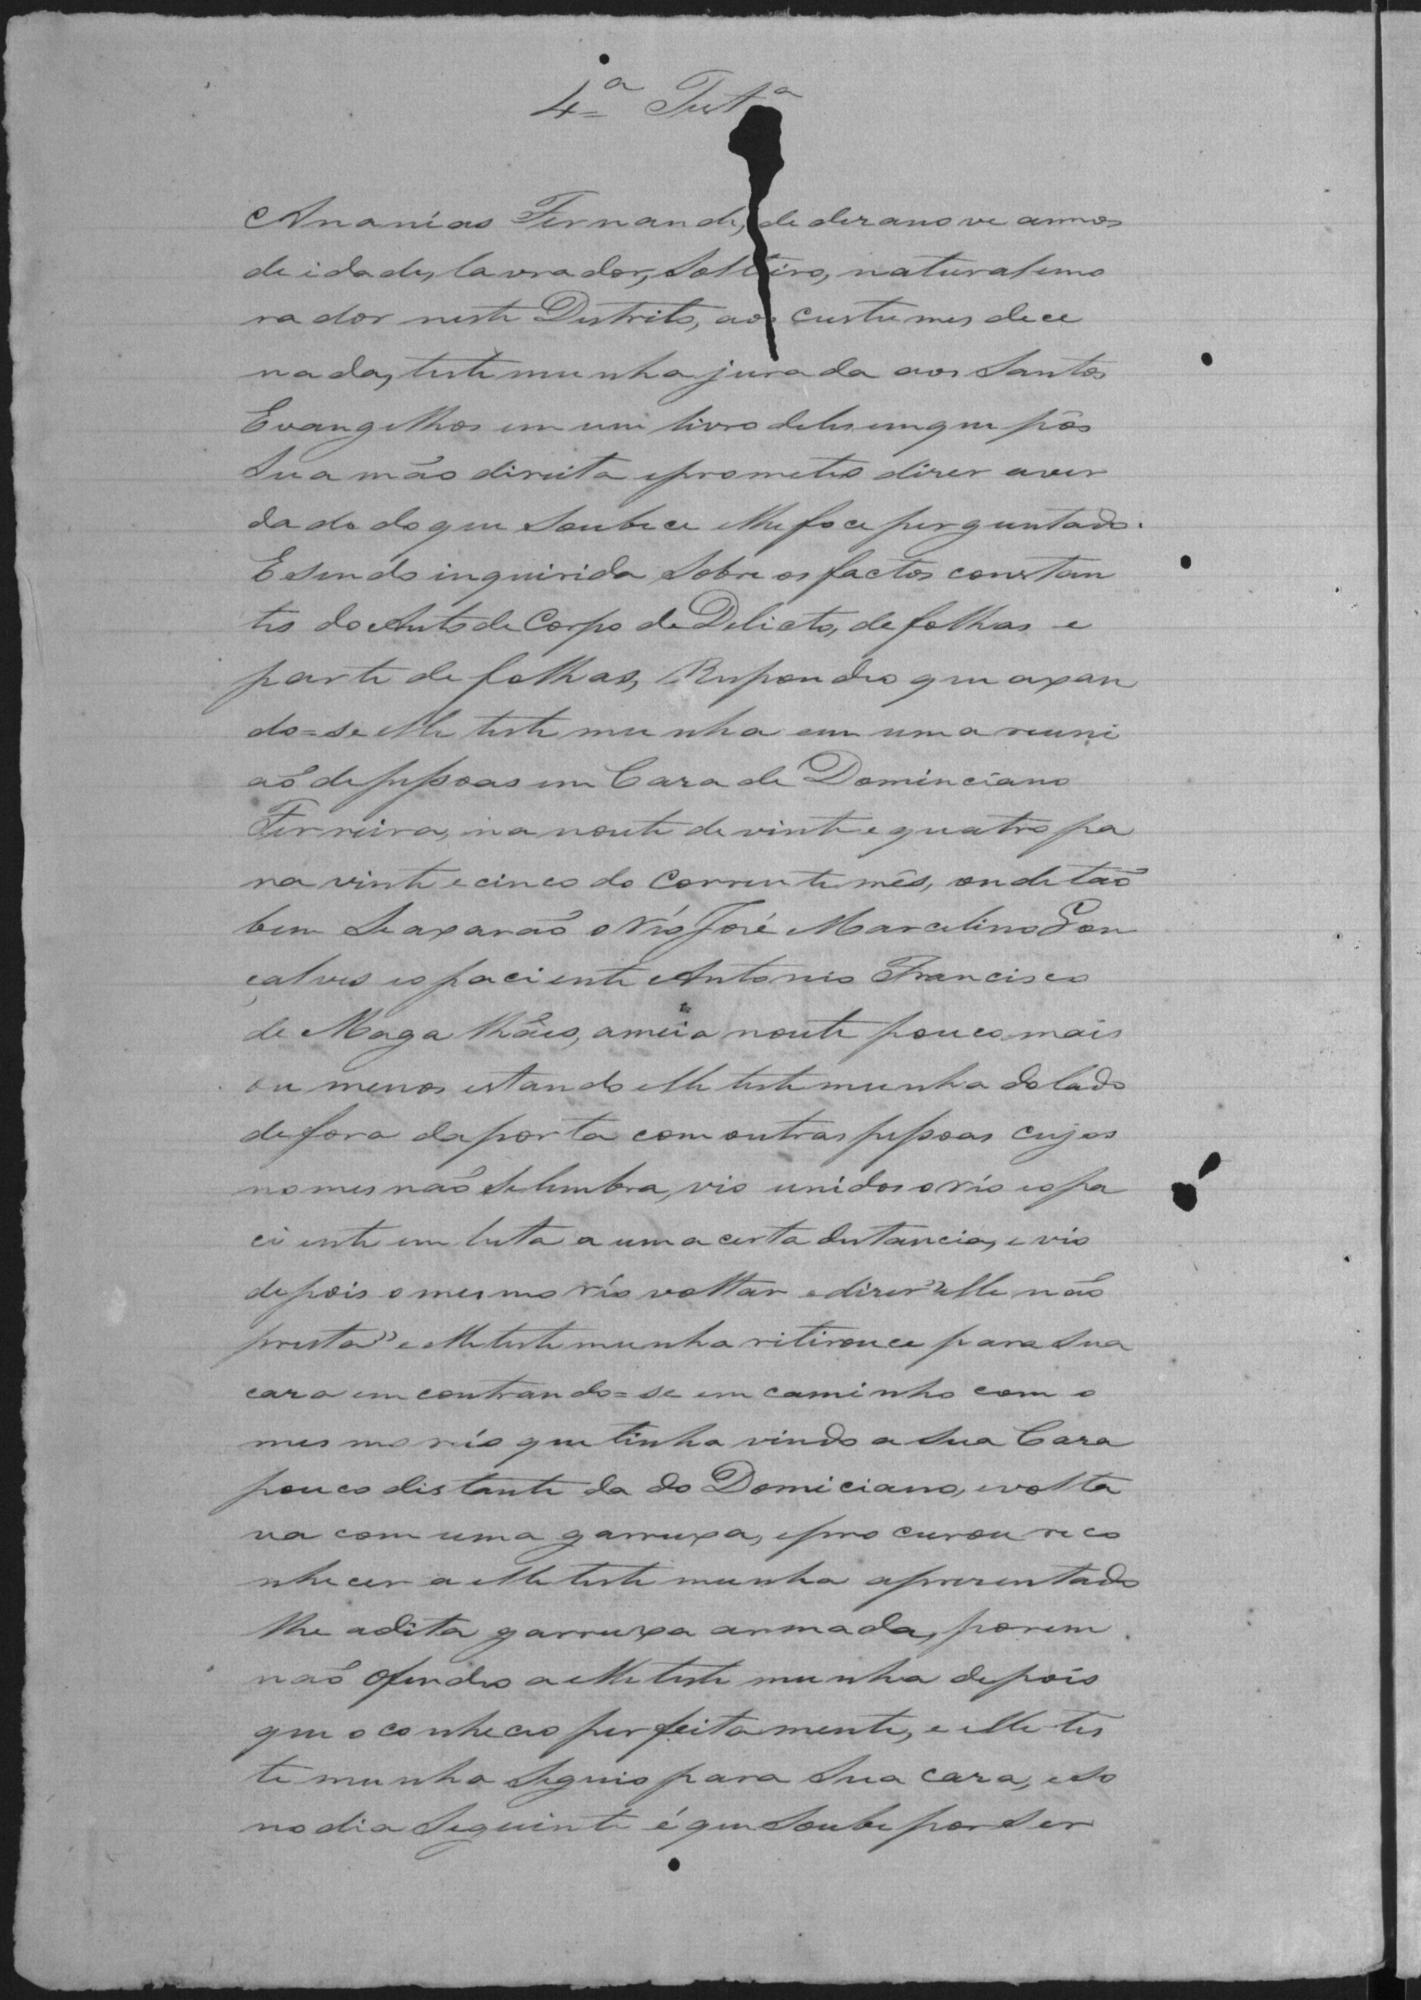 4ª Testª
Ananias Fernandes, de desanove annos
de idade, lavrador, Solteiro, natural e mo
rador neste Destrito, aos custumes dice
nada, testemunha jurada aos Santos
Evangelhos em um livro deles em que pôs
Sua mão direita e prometeo diser a ver
dade do que Soubece e lhe foce perguntado.
E sendo inquirida Sobre os factos constan
tes do Auto de Corpo de Delicto, de folhas e
parte de folhas, Respondeo que axan
do=se elle testemunha em uma reuni
aõ de pessoas em Casa de Dominciano
Ferreira, na noute de vinte e quatro pa
ra vinte e cinco do Corrente mês, onde taõ
bem Se axaraõ o réo José Marcelino Gon
çalves e o paciente Antonio Francisco
de Magalhães, a meia noute pouco mais
ou menos estando elle testemunha do lado
de fora da porta com outras pessoas cujos
nomes naõ Se lembra, vio unidos o réo e o pa
ciente em luta a uma certa distancia, e vio
depois o mesmo réo voltar e diser "elle não
presta" e elle testemunha ritirouce para Sua
casa emcontrando=se em caminho com o
mesmo réo que tinha vindo a Sua Casa
pouco distante da do Domiciano, e volta
va com uma garruxa, e procurou reco
nhecer a elle testemunha apresentado
lhe a dita garruxa armada, porem
naõ ofendeo a elle testemunha depois
que o conheceo perfeitamente, e elle tes
temunha Seguio para Sua casa, e so
no dia Seguinte é que Soube por Ser